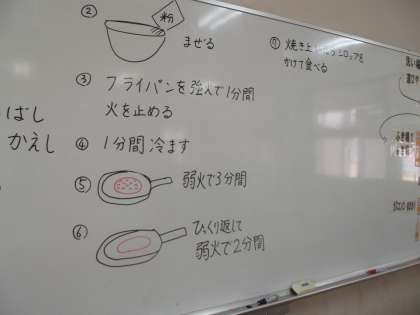 ② 粉
まぜる
③ フライパンを強火で1分間
火を止める
④ 1分間 冷ます
⑤ 弱火で3分間
⑥ ひっくり返して
弱火で2分間
⑦ 焼き上
シロップを
かけて食べる
ばし
かえし